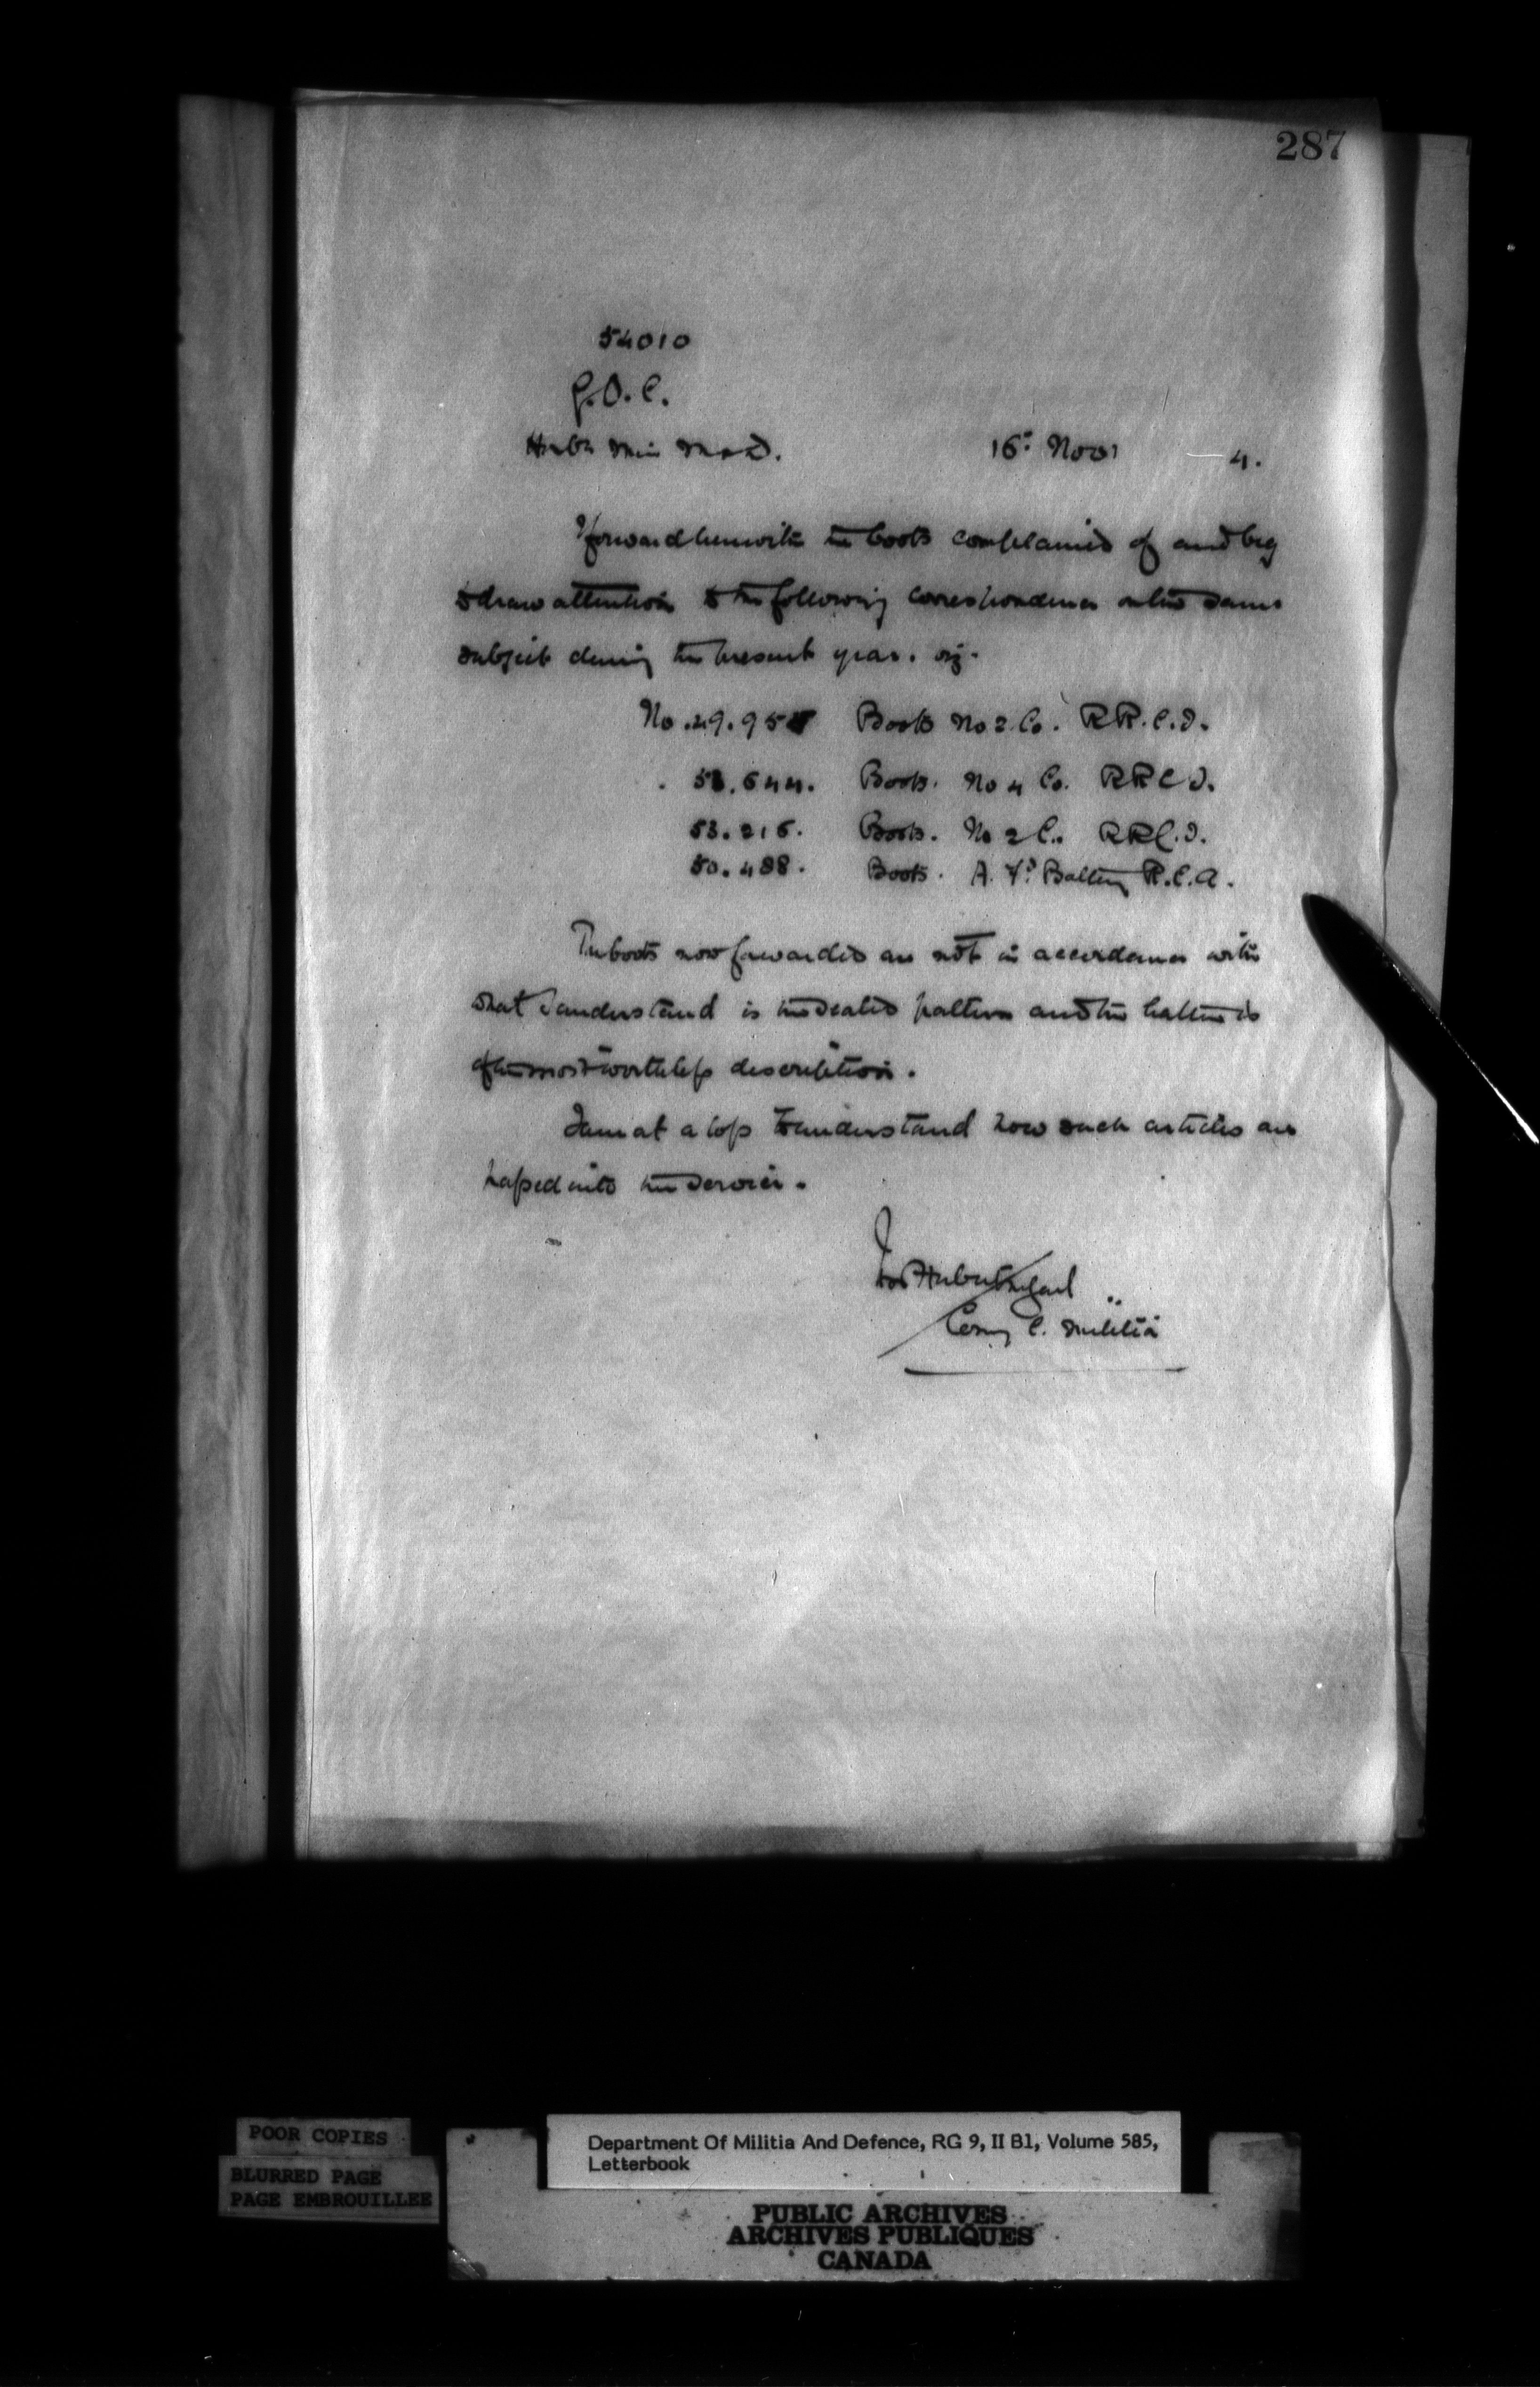 287
54010
G.O.C.
Honble Min M & D. 16th Novr — 4.
I forward herewith the boots complained of and beg
to draw attention to the following correspondence on the same
subject during the present year. viz.
No. 29.95 Boots No 2. Co. R R. C. I.
53.644. Boots. No 4 Co. R R C I.
53.216. Boots. No 2 C. R R C. I.
50.488. Boots. A. Fd. Battery R. C. A.
The boots now forwarded are not in accordance with
what I understand is the sealed pattern and the leather is
of the most worthless description.
I am at a loss to understand how such articles are
passed into the service.
Ivor Herbert M Genl
Comg C. Militia
POOR COPIES
BLURRED PAGE
PAGE EMBROUILLEE
Department Of Militia And Defence, RG 9, II B1, Volume 585,
Letterbook
PUBLIC ARCHIVES
ARCHIVES PUBLIQUES
CANADA